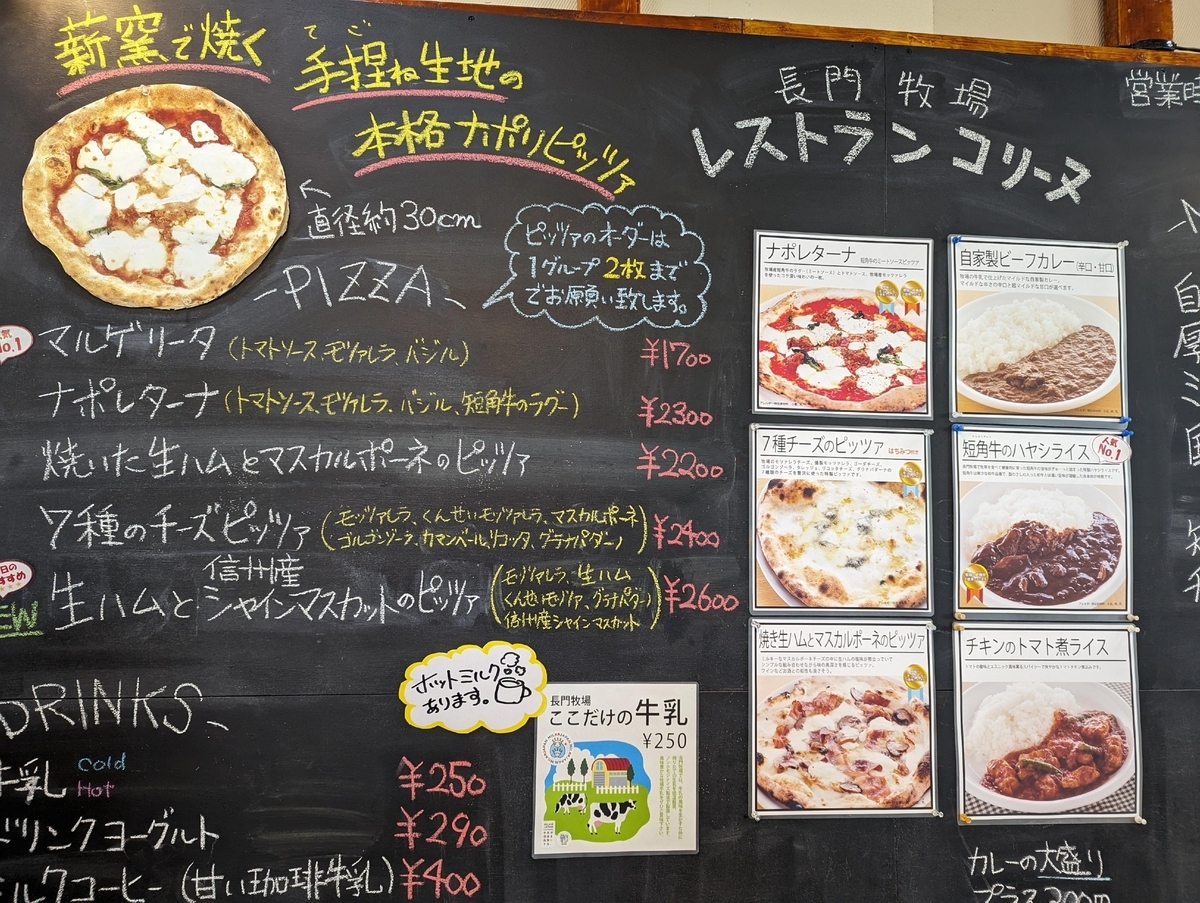 薪窯で焼く
てご
手捏ね生地の
本格ナポリピッツァ
直径約30cm
PIZZA
ピッツァのオーダーは
1グループ2枚まで
でお願い致します。
人気
No.1
マルゲリータ(トマトソース、モッツァレラ、バジル) ¥1700
ナポレターナ(トマトソース、モッツァレラ、バジル、短角牛のラグー) ¥2300
焼いた生ハムとマスカルポーネのピッツァ ¥2200
7種のチーズピッツァ(モッツァレラ、くんせいモッツァレラ、マスカルポーネ
ゴルゴンゾーラ、カマンベール、リコッタ、グラナパダーノ) ¥2400
NEW
生ハムと信州産シャインマスカットのピッツァ(モッツァレラ、生ハム
くんせいモッツァレラ、グラナパダーノ
信州産シャインマスカット) ¥2600
DRINKS
牛乳 Cold ¥250
Hot
ドリンクヨーグルト ¥290
ミルクコーヒー(甘い珈琲牛乳) ¥400
ホットミルク
あります。
長門牧場
ここだけの牛乳
¥250
長門 牧場
レストラン コリーヌ
ナポレターナ 短角牛のミートソースピッツァ
自家製ビーフカレー(辛口・甘口)
7種チーズのピッツァ はちみつ付き
短角牛のハヤシライス
人気
No.1
焼き生ハムとマスカルポーネのピッツァ
チキンのトマト煮ライス
カレーの大盛り
プラス200円
営業時